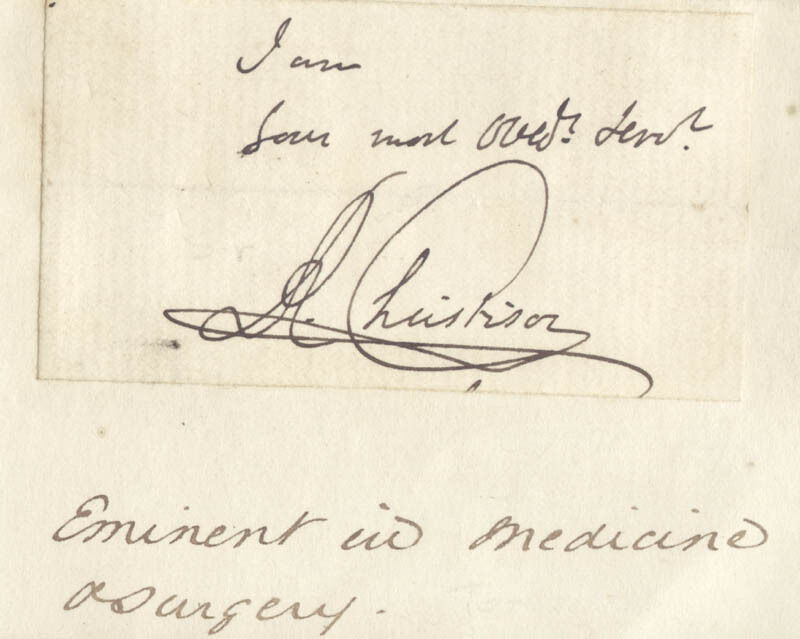 I am
Your most Obed.t Serv.t
R. Christison
Eminent in medicine
& surgery.